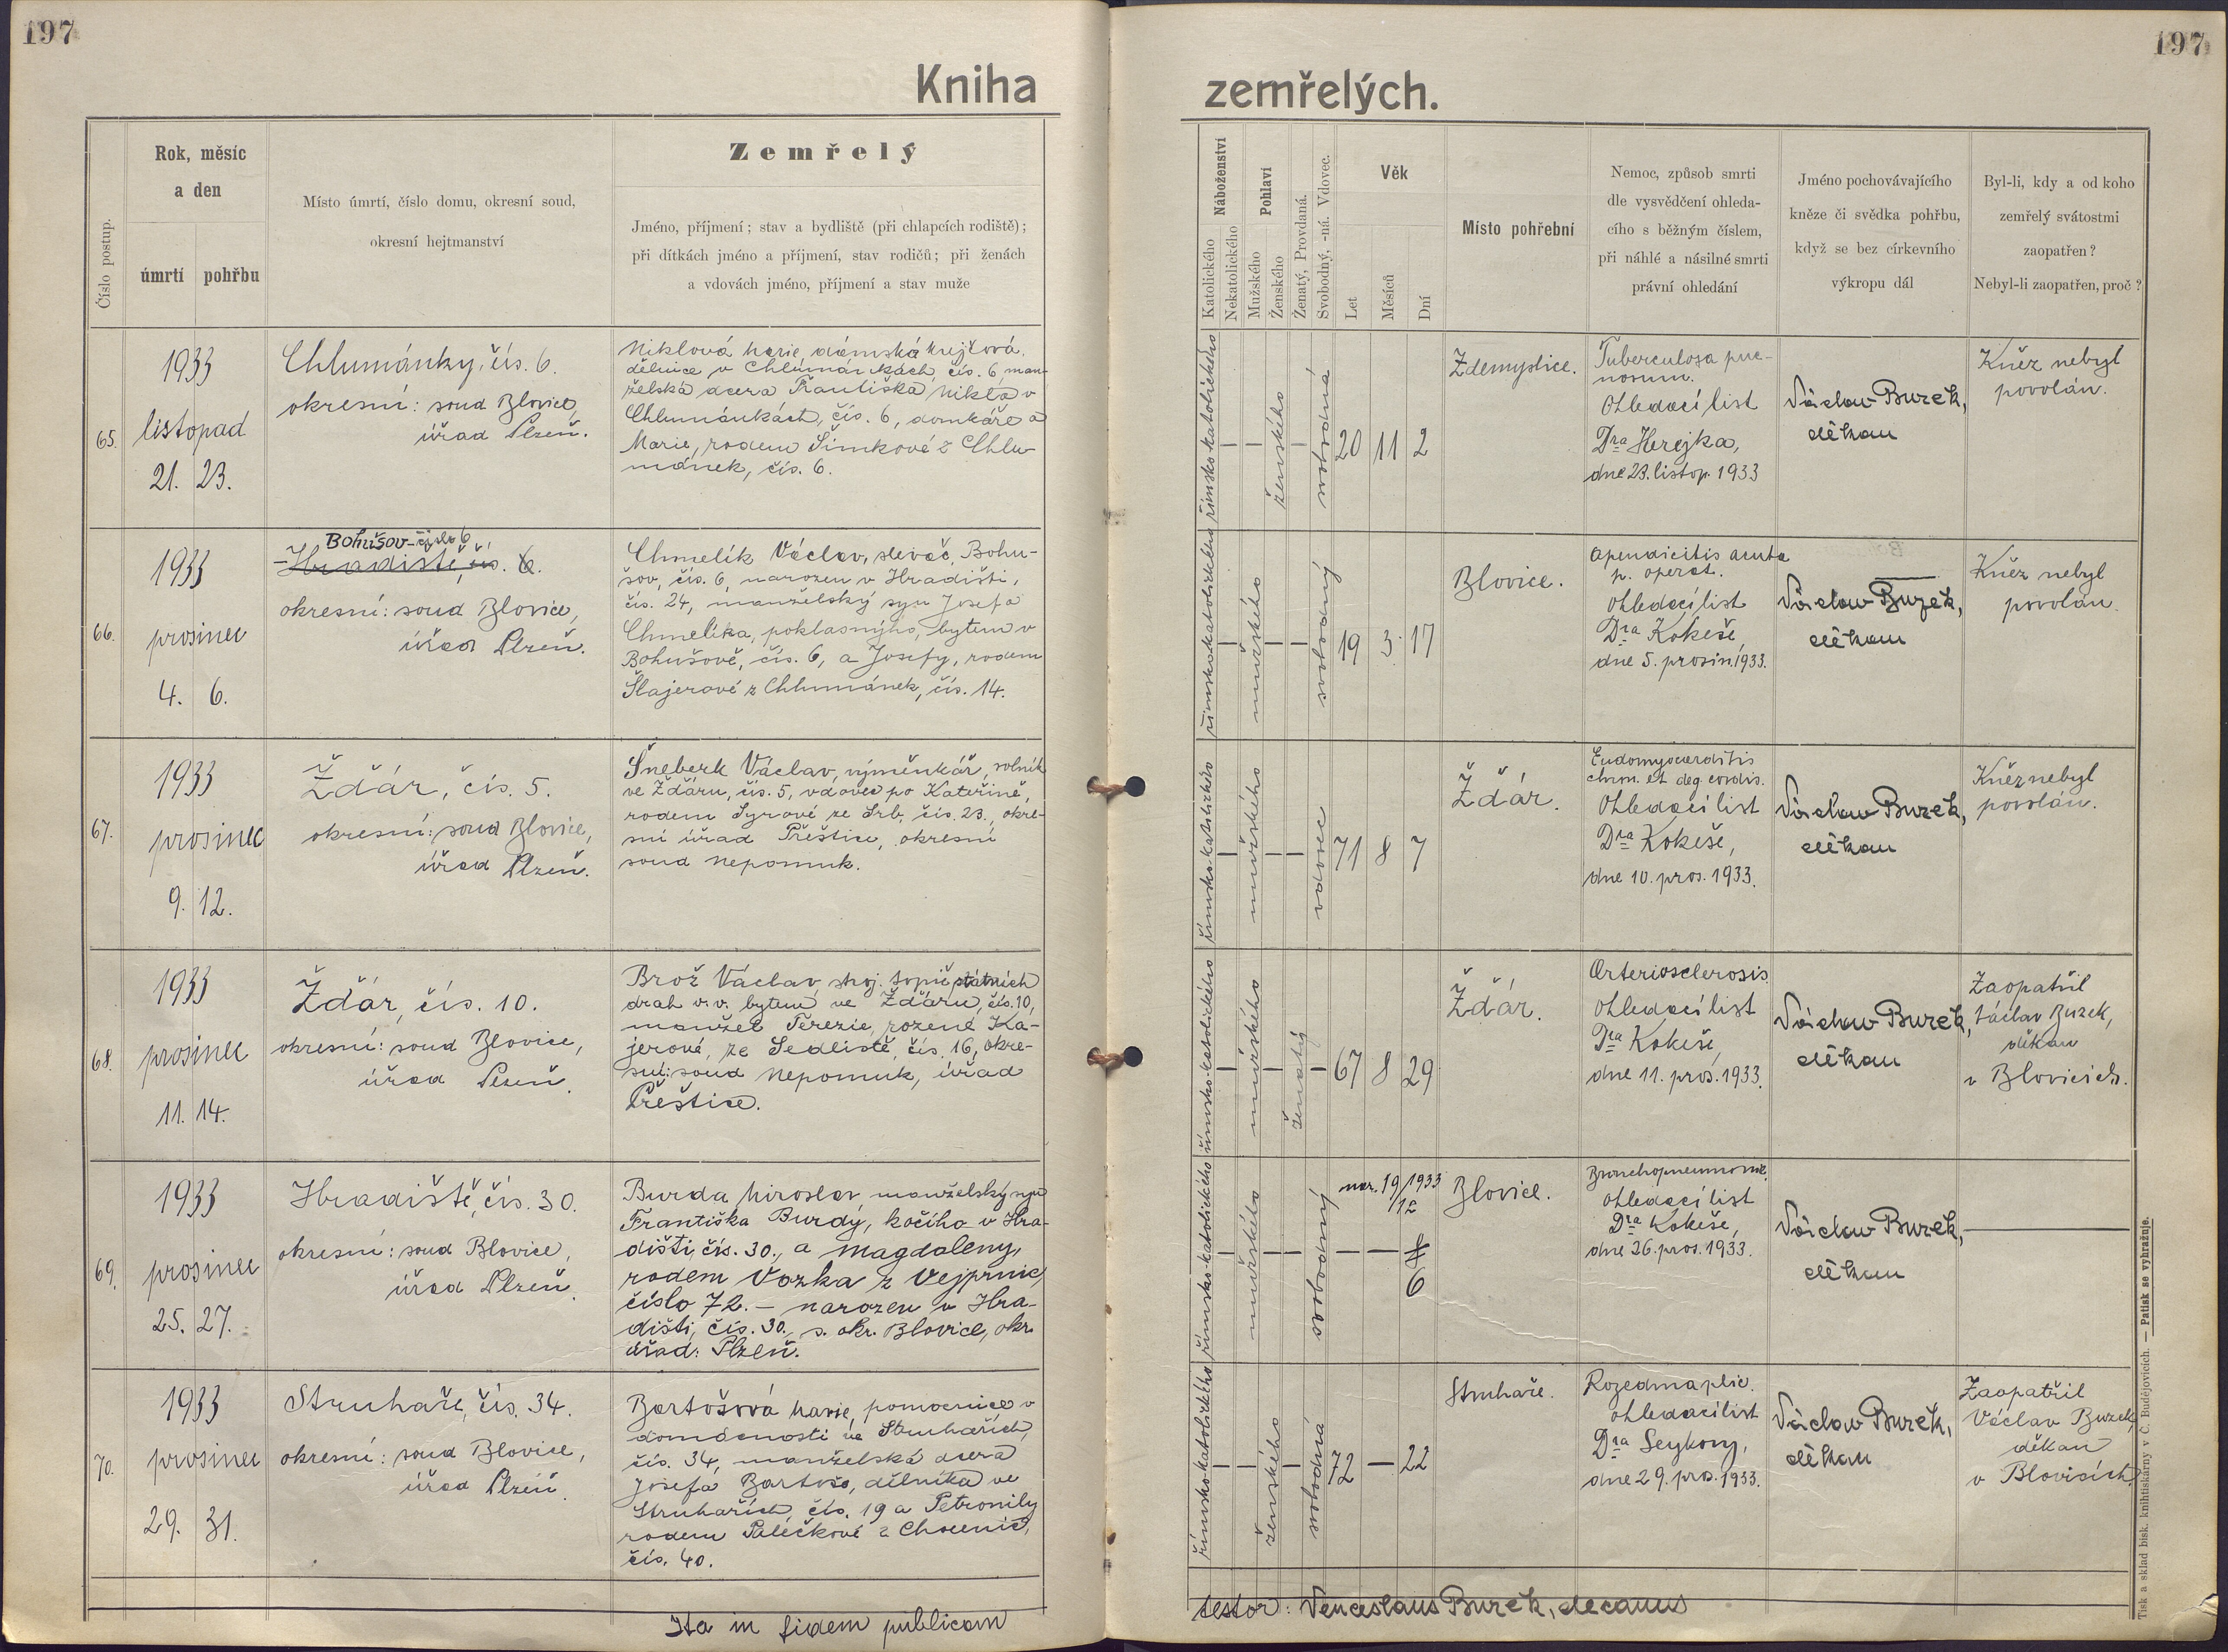 197
197
Kniha
zemřelých.
Číslo postup.
Rok, měsíc
a den
úmrtí
pohřbu
Místo úmrtí, číslo domu, okresní soud,
okresní hejtmanství
Zemřelý
Jméno, příjmení; stav a bydliště (při chlapcích rodiště);
při dítkách jméno a příjmení, stav rodičů; při ženách
a vdovách jméno, příjmení a stav muže
Náboženství
Katolického
Nekatolického
Pohlaví
Mužského
Ženského
Ženatý, Provdaná.
Svobodný, -ná. Vdovec.
Věk
Let
Měsíců
Dní
Místo pohřební
Nemoc, způsob smrti
dle vysvědčení ohleda-
cího s běžným číslem,
při náhlé a násilné smrti
právní ohledání
Jméno pochovávajícího
kněze či svědka pohřbu,
když se bez církevního
výkropu dál
Byl-li, kdy a od koho
zemřelý svátostmi
zaopatřen?
Nebyl-li zaopatřen, proč?
65.
1933
listopad
21. 23.
Chlumánky, čís. 6.
okresní: soud Blovice,
úřad Plzeň.
Niklová Marie, dámská krejčová,
dělnice v Chlumánkách, čís. 6, man-
želská dcera Františka Nikla v
Chlumánkách, čís. 6, domkáře a
Marie, rodem Šimkové z Chlu-
mánek, čís. 6.
římsko-katolického
— —
ženského
—
svobodná
20 11 2
Zdemyslice.
Tuberculosa pul-
monum.
Ohledací list
Dra Herejka,
dne 23. listop. 1933
Václav Buzek,
děkan
Kněz nebyl
povolán.
66.
1933
prosinec
4. 6.
Bohušov - číslo 6
Hradiště, čís. 6.
okresní: soud Blovice,
úřad Plzeň.
Chmelík Václav, slevač, Bohu-
šov, čís. 6, narozen v Hradišti,
čís. 24, manželský syn Josefa
Chmelíka, poklasného, bytem v
Bohušově, čís. 6, a Josefy, rodem
Šlajerové z Chlumánek, čís. 14.
římskokatolického
—
mužského
— —
svobodný
19 3 17
Blovice.
Apendicitis acuta
p. operat.
Ohledací list
Dra Kokeše,
dne 5. prosin. 1933.
Václav Buzek,
děkan
Kněz nebyl
povolán.
67.
1933
prosinec
9. 12.
Žďár, čís. 5.
okresní: soud Blovice,
úřad Plzeň.
Šneberk Václav, výměnkář, rolník
ve Žďáru, čís. 5, vdovec po Kateřině,
rodem Syrové ze Srb, čís. 23., okre-
sní úřad Přeštice, okresní
soud Nepomuk.
římsko-katolického
—
mužského
— —
vdovec
71 8 7
Žďár.
Endomyocarditis
chron. et deg. cordis.
Ohledací list
Dra Kokeše,
dne 10. pros. 1933.
Václav Buzek,
děkan
Kněz nebyl
povolán.
68.
1933
prosinec
11. 14.
Žďár, čís. 10.
okresní: soud Blovice,
úřad Plzeň.
Brož Václav, stroj. topič státních
drah v. v. bytem ve Žďáru, čís. 10,
manžel Terezie, rozené Ka-
jerové, ze Sedliště, čís. 16, okre-
sní: soud Nepomuk, úřad
Přeštice.
římsko-katolického
—
mužského
—
ženatý
—
67 8 29
Žďár.
Arteriosclerosis.
Ohledací list
Dra Kokeše,
dne 11. pros. 1933.
Václav Buzek,
děkan
Zaopatřil
Václav Buzek,
děkan
v Blovicích.
69.
1933
prosinec
25. 27.
Hradiště, čís. 30.
okresní: soud Blovice,
úřad Plzeň.
Burda Miroslav, manželský syn
Františka Burdy, kočího v Hra-
dišti, čís. 30., a Magdaleny,
rodem Vozka z Vejprnic,
číslo 72. — narozen v Hra-
dišti, čís. 30., s. okr. Blovice, okr.
úřad: Plzeň.
římsko-katolického
—
mužského
— —
svobodný
nar. 19/12 1933
— —
6
Blovice.
Bronchopneumonie.
Ohledací list
Dra Kokeše,
dne 26. pros. 1933.
Václav Buzek,
děkan
—
70.
1933
prosinec
29. 31.
Struhaře, čís. 34.
okresní: soud Blovice,
úřad Plzeň.
Bartošová Marie, pomocnice v
domácnosti ve Struhařích,
čís. 34, manželská dcera
Josefa Bartoše, dělníka ve
Struhařích, čís. 19 a Petronily
rodem Palečkové z Chocenic,
čís. 40.
římsko-katolického
— —
ženského
—
svobodná
72 — 22
Struhaře.
Rozedma plic.
Ohledací list
Dra Seykory,
dne 29. pros. 1933.
Václav Buzek,
děkan
Zaopatřil
Václav Buzek,
děkan
v Blovicích.
Ita in fidem publicam
testor: Venceslaus Buzek, decanus
Tisk a sklad bisk. knihtiskárny v Č. Budějovicích. — Patisk se vyhražuje.